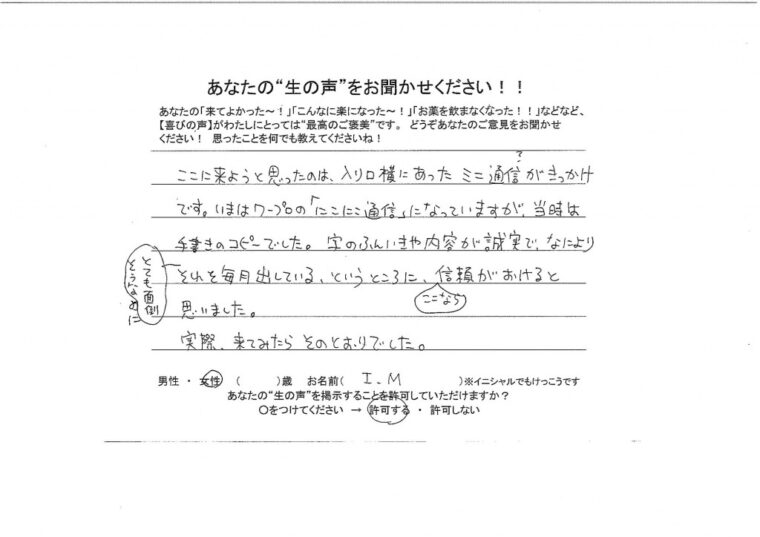 あなたの“生の声”をお聞かせください！！
あなたの「来てよかった～！」「こんなに楽になった～！」「お薬を飲まなくなった！！」などなど、
【喜びの声】がわたしにとっては“最高のご褒美”です。 どうぞあなたのご意見をお聞かせ
ください！ 思ったことを何でも教えてくださいね！
?
ここに来ようと思ったのは、入り口横にあった ミニ通信がきっかけ
です。いまはワープロの「にこにこ通信」になっていますが、当時は
手書きのコピーでした。 字のふんいきや内容が誠実で、なにより
とても面倒
そうなのに
それを毎月出している、というところに、信頼がおけると
ここなら
思いました。
実際、来てみたら そのとおりでした。
男性 ・ 女性 （ ）歳 お名前（ I.M ）※イニシャルでもけっこうです
あなたの“生の声”を掲示することを許可していただけますか？
○をつけてください → 許可する ・ 許可しない